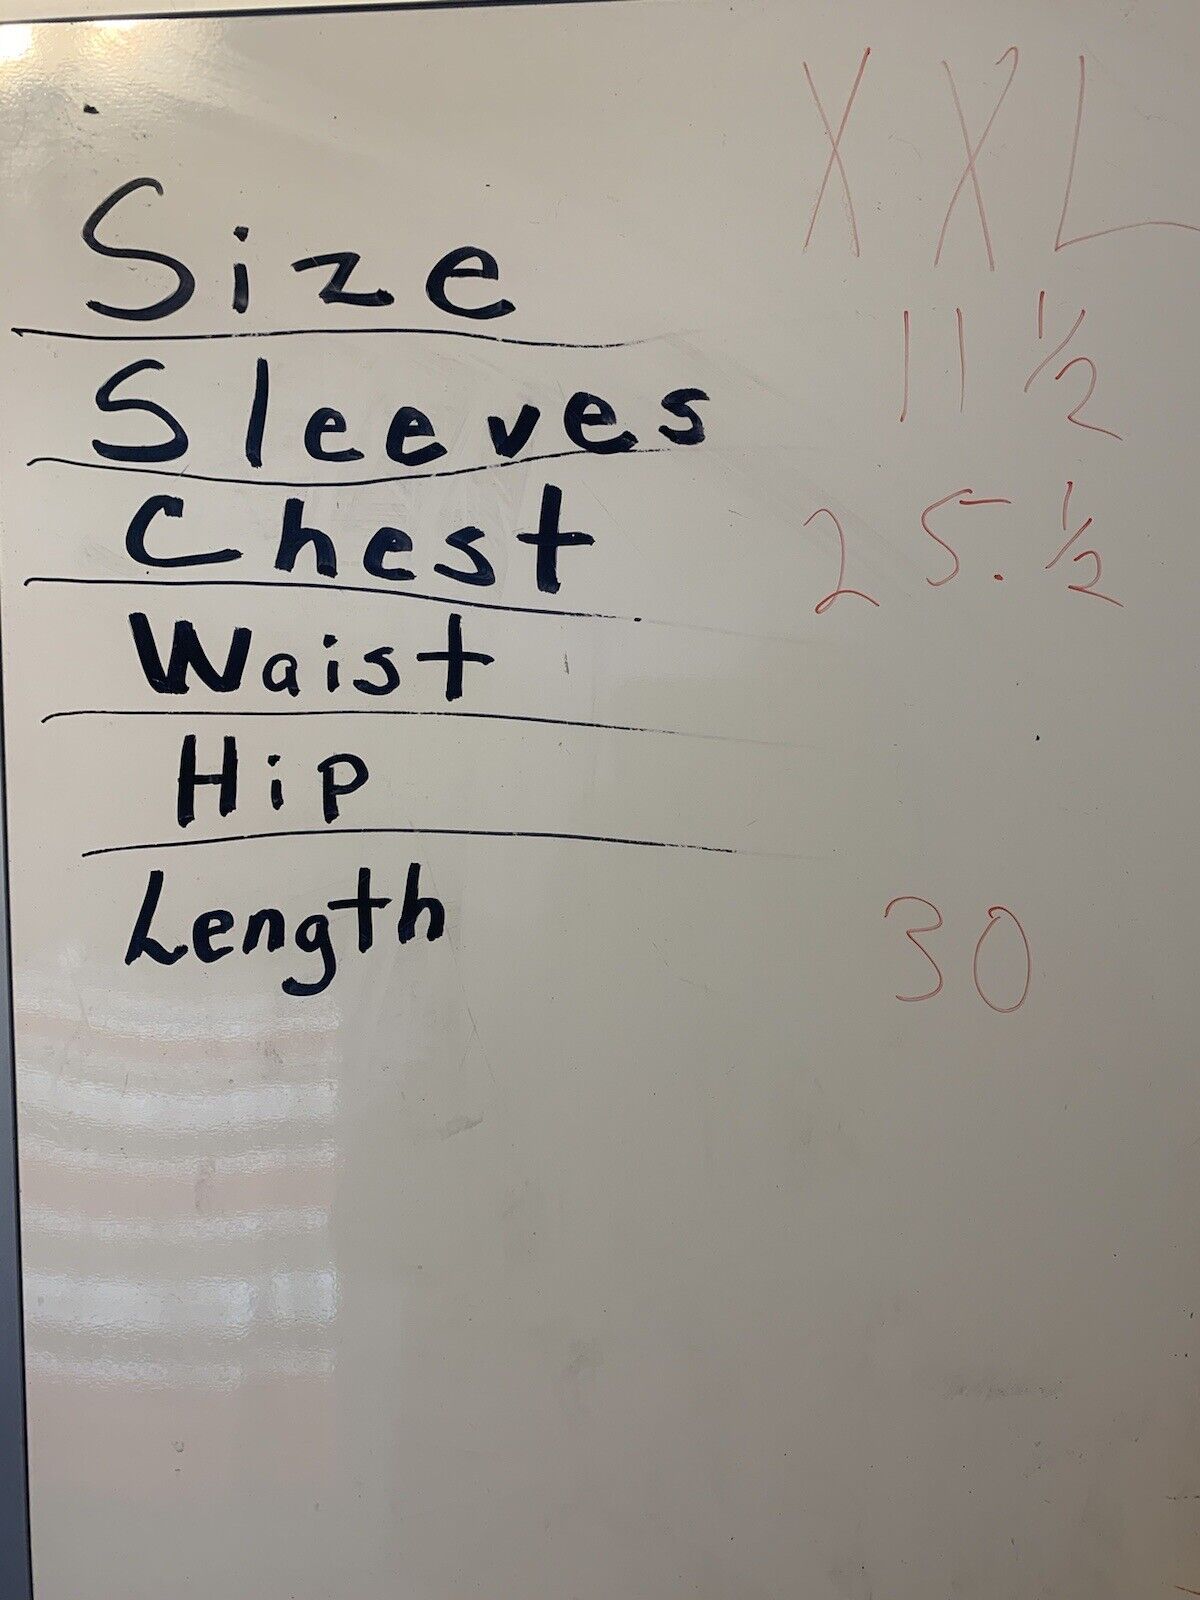 Size XXL
Sleeves 11 1/2
Chest 25. 1/2
Waist
Hip
Length 30